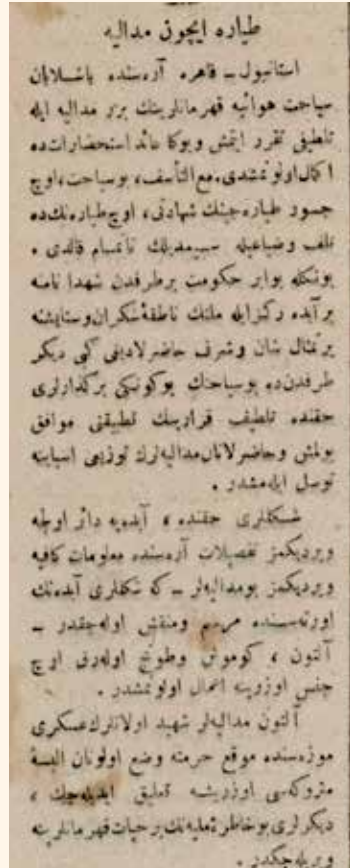 طیاره ایچون مدالیه
استانبول ـ قاهره آره‌سنده باشلایان
سیاحت هوائیه قهرمانلرینك برر مدالیه ایله
تلطیفی تقرر ایتمش وبوكا عائد استحضارات‌ده
اكمال اولونمشدی. مع‌التأسف، بوسیاحت، اوچ
جسور طیاره‌جینك شهادتی، اوچ طیاره‌نك‌ده
تلف وضیاعیله سبیه‌دیلك ناتمام قالدی .
بونكله برابر حكومت برطرفدن شهدا نامنه
برآبده ركزایله ملتك ناطقهٔ شكران وستایشنه
برتمثال شان وشرف حاضرلادیغی كبی دیكر
طرفدن‌ده بوسیاحتك بوكونكی برگذارلری
حقنده تلطیف قرارینك تطبیقنی موافق
بولمش وحاضرلانان مدالیه‌لرك توزیعی اسبابنه
توسل ایله‌مشدر .
شكللری حقنده ، آبده‌یه دائر اولجه
ویردیكمز تفصیلات آره‌سنده معلومات كافیه
ویردیكمز بومدالیه‌لر ـ كه شكللری آبده‌نك
اورته‌سنده مرسم ومنقش اوله‌جقدر ـ
آلتون ، كوموش وطونج اوله‌رق اوچ
جنس اوزرینه اعمال اولونمشدر .
آلتون مدالیه‌لر شهید اولانلرك عسكری
موزه‌سنده موقع حرمته وضع اولونان البسهٔ
متروكه‌سی اوزرینه تعلیق ایدیله‌جك ،
دیكرلری بوخاطرهٔ علیه‌نك برحیات قهرمانلرینه
ویریله‌جكدر .